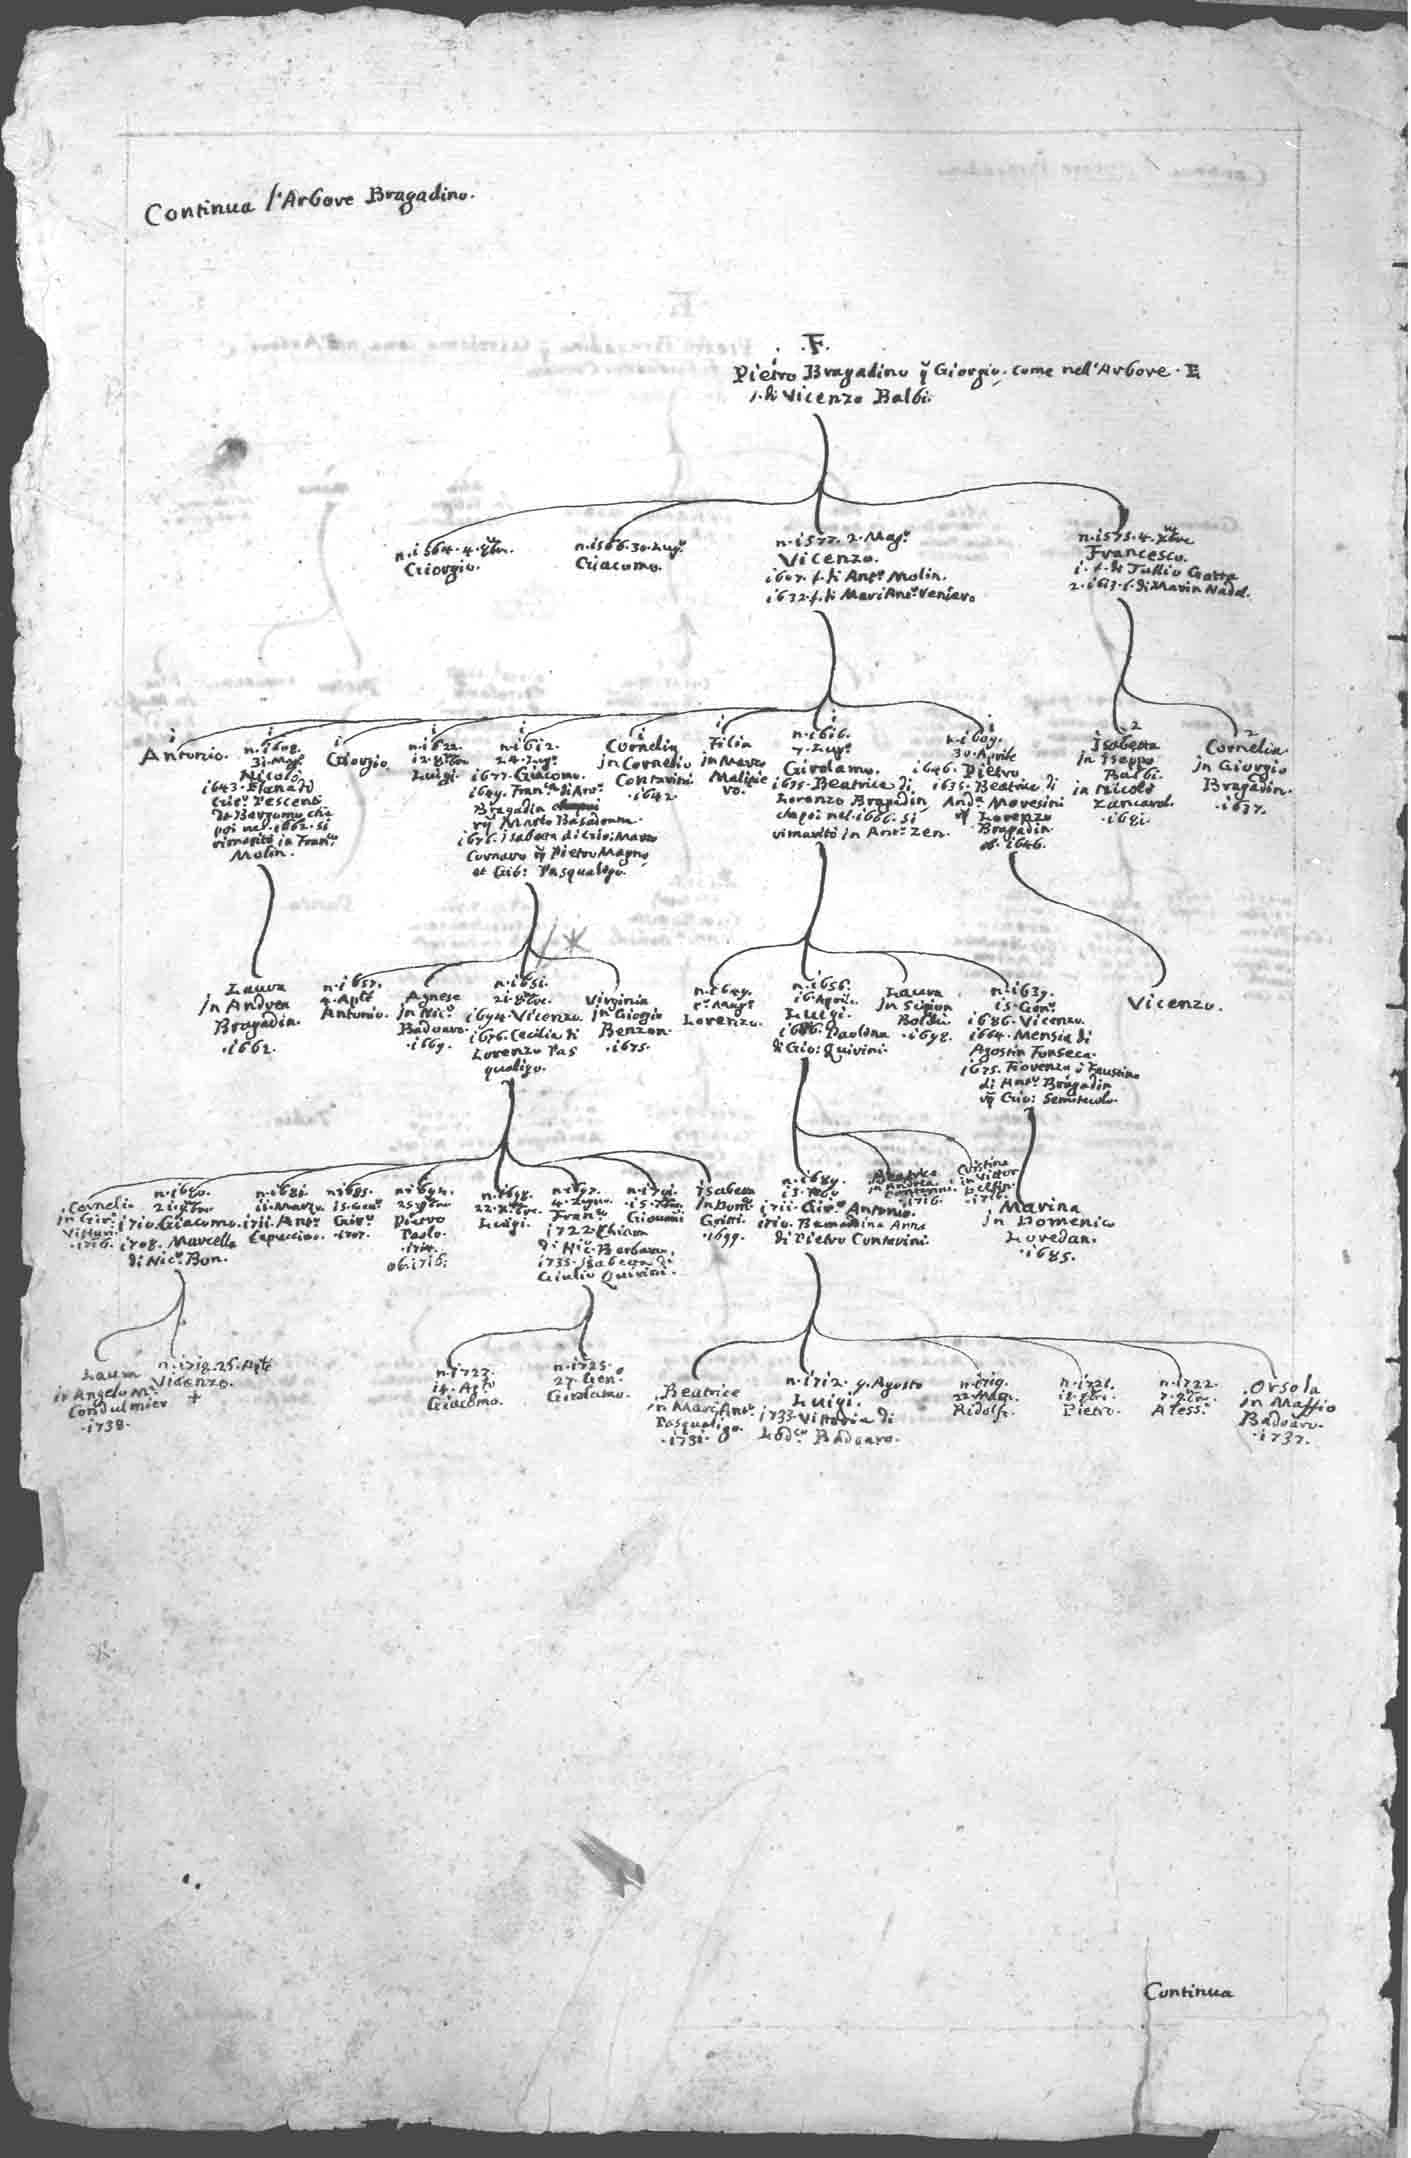 Continua l'Arbore Bragadino.
.F.
Pietro Bragadino q Giorgio, come nell'Arbore. E
f. di Vicenzo Balbi.
n. i564. 4. 8bre.
Giorgio.
n. i566. 30. Lugo.
Giacomo.
n. i577. 2. Mago.
Vicenzo.
i607. f. di Anto. Molin.
i632. f. di Marc'Anto. Veniero
n. i575. 4. Xbre
Francesco.
i. f. di Tullio
2. i613. f. di Marin Nadal.
i
Antonio.
i
n. i608.
3i. Mago.
Nicolò
i643.
Pescenti
da Bergamo che
poi nel i662. si
rimaritò in Franco.
Molin.
i
Giorgio
i
n. i622.
i2. 8bre
Luigi.
i
n. i6i2.
24. Lugo.
i677. Giacomo.
i649. Franca. di Anto.
Bragadin
rq Marco Basadonna.
i676. isabetta di Gio: Marco
Cornaro q Pietro Magno,
et Gib: Pasqualigo.
i
Cornelia
in Cornelio
Contarini
.i642.
i
Filia
in Marco
Malipie
ro.
i
n. i6i6.
7. Lugo.
Girolamo.
i635. Beatrice di
Lorenzo Bragadin
che poi nel i666. si
rimaritò in Anto. Zen.
i
n. i609.
30. Aprile
i646. Pietro
i635. Beatrice di
Anda. Moresini
rq Lorenzo
Bragadin
ob. i646.
2
Isabetta
in Iseppo
Balbi.
in Nicolò
Zancarol.
.i68i.
2
Cornelia
in Giorgio
Bragadin.
.i637.
Laura
in Andrea
Bragadin.
.i662.
n. i657.
4. Aple
Antonio.
Agnese
in Nico.
Badoaro.
.i669.
n. i65i.
2i. 8bre.
i694. Vicenzo.
i676. Cecilia di
Lorenzo Pas
qualigo.
Virginia
in Giorgio
Benzon.
.i675.
n. i649.
Mago
Lorenzo.
n. i656.
i6. Aprile.
Luigi.
i686. Paolina
di Gio: Quirini.
Laura
in Scipion
Boldù
.i698.
n. i639.
i5. Geno.
i686. Vicenzo.
i664. Mensia di
Agostin Fonseca.
i675. Fiorenza ò Faustina
di Anto. Bragadin
rq Gio: Semitecolo.
Vicenzo.
Cornelia
in Giro.
Vitturi.
.i7i6.
n. i680.
2i. 9bre
i7i0. Giacomo.
i708. Marcella
di Nico. Bon.
n. i68i.
ii. Marzo.
i7ii. Anto.
Capuccino.
n. i685.
i5. Geno.
Giro.
.i707.
n. i694.
25. 9bre
Pietro
Paolo.
.i7i4.
ob. i7i6.
n. i698.
22. Xbre.
Luigi.
n. i697.
4. Zugno.
Franco.
i722. Chiara
di Nico. Barbaro.
i735. Isabetta di
Giulio Quirini.
n. i70i.
i5. 7bre
Giovanni
Isabetta
in Domo.
Gritti.
.i699.
n. i689.
i3. Febo
i7ii. Giro. Antonio.
i7i0. Bernardina Anna
di Pietro Contarini.
Beatrice
in Andrea
Contarini.
.i7i6.
Cristina
in Vittor
Delfin.
.i7i6.
Marina
in Domenico
Loredan.
.i685.
Laura
in Angelo Ma.
Condulmier
.i738.
n. i7i9. 25. Aple
Vicenzo.
+
n. i723.
i4. Aplo
Giacomo.
n. i725.
27. Gen.o
Girolamo.
Beatrice
in Marc'Anto.
Pasqualigo.
.i73i.
n. i7i2. 9. Agosto
Luigi.
i733. Vittoria di
Lodco. Badoaro.
n. i7i9.
22. Mago.
Ridolfo.
n. i72i.
i8.
Pietro.
n. i722.
7. 9bre
Aless.o
Orsola
in Maffio
Badoaro.
.i737.
Continua